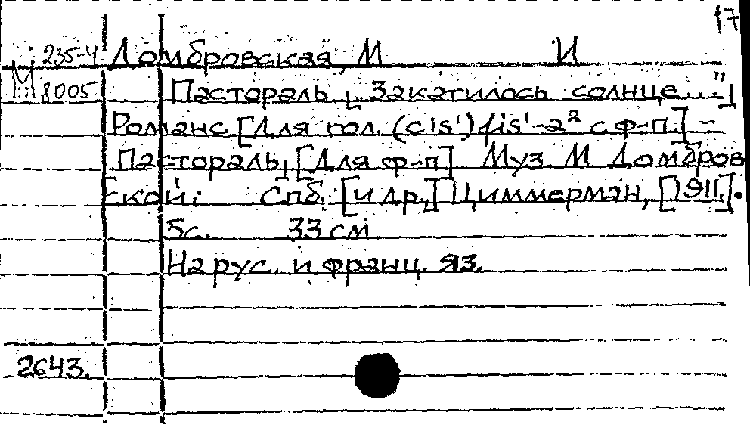 17
М 235-4 Домбровская, М И
8005 Пастораль ["Закатилось солнце..."]
Романс [Для гол. (cis') fis'-a² с ф-п.] –
Пастораль, [Для ф-п] Муз М Домбров
ской: Спб. [и др.,] Циммерман, [1911].
5с. 33 см
На рус. и франц. яз.
2643.